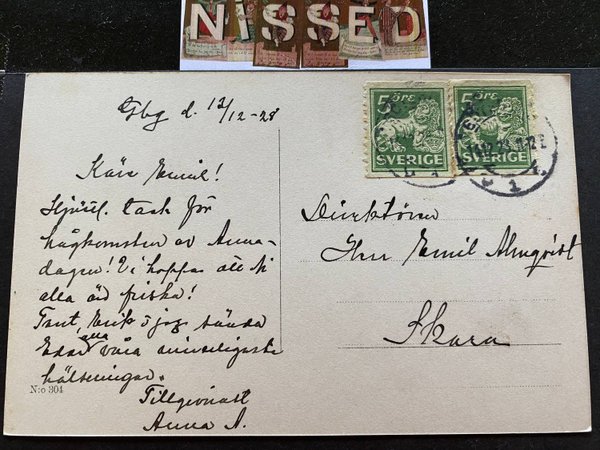 NISSED
Gbg d. 12/12-28
Käre Emil!
Hjärtl. tack för
hågkomsten av Anna-
dagen! Vi hoppas att Ni
alla äro friska!
Erik o jag sända
Eder alla våra innerligaste
hälsningar.
Tillgivnast
Anna A.
N:o 304
5 ÖRE
SVERIGE
5 ÖRE
SVERIGE
Direktören
Herr Emil Almqvist
Skara